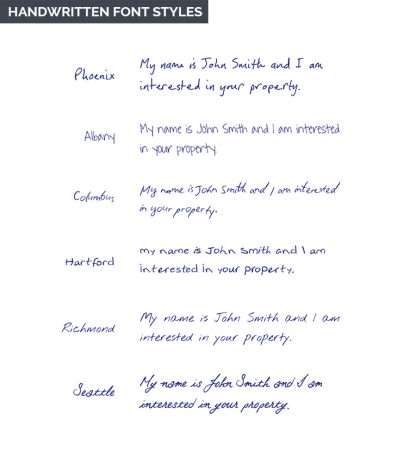 HANDWRITTEN FONT STYLES
Phoenix
My name is John Smith and I am
interested in your property.
Albany
My name is John Smith and I am interested
in your property.
Columbus
My name is John Smith and I am interested
in your property.
Hartford
my name is John Smith and I am
interested in your property.
Richmond
My name is John Smith and I am
interested in your property.
Seattle
My name is John Smith and I am
interested in your property.